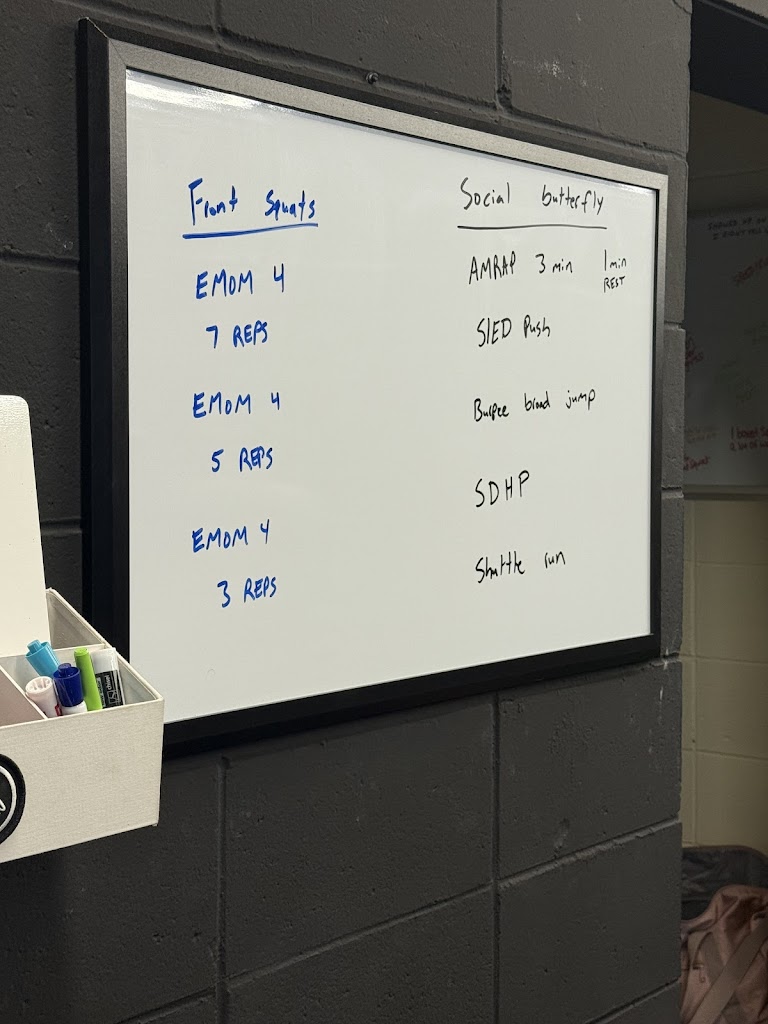 Front Squats
EMOM 4
7 REPS
EMOM 4
5 REPS
EMOM 4
3 REPS
Social butterfly
AMRAP 3 min 1 min
REST
SlED Push
Burpee broad jump
SDHP
Shuttle run